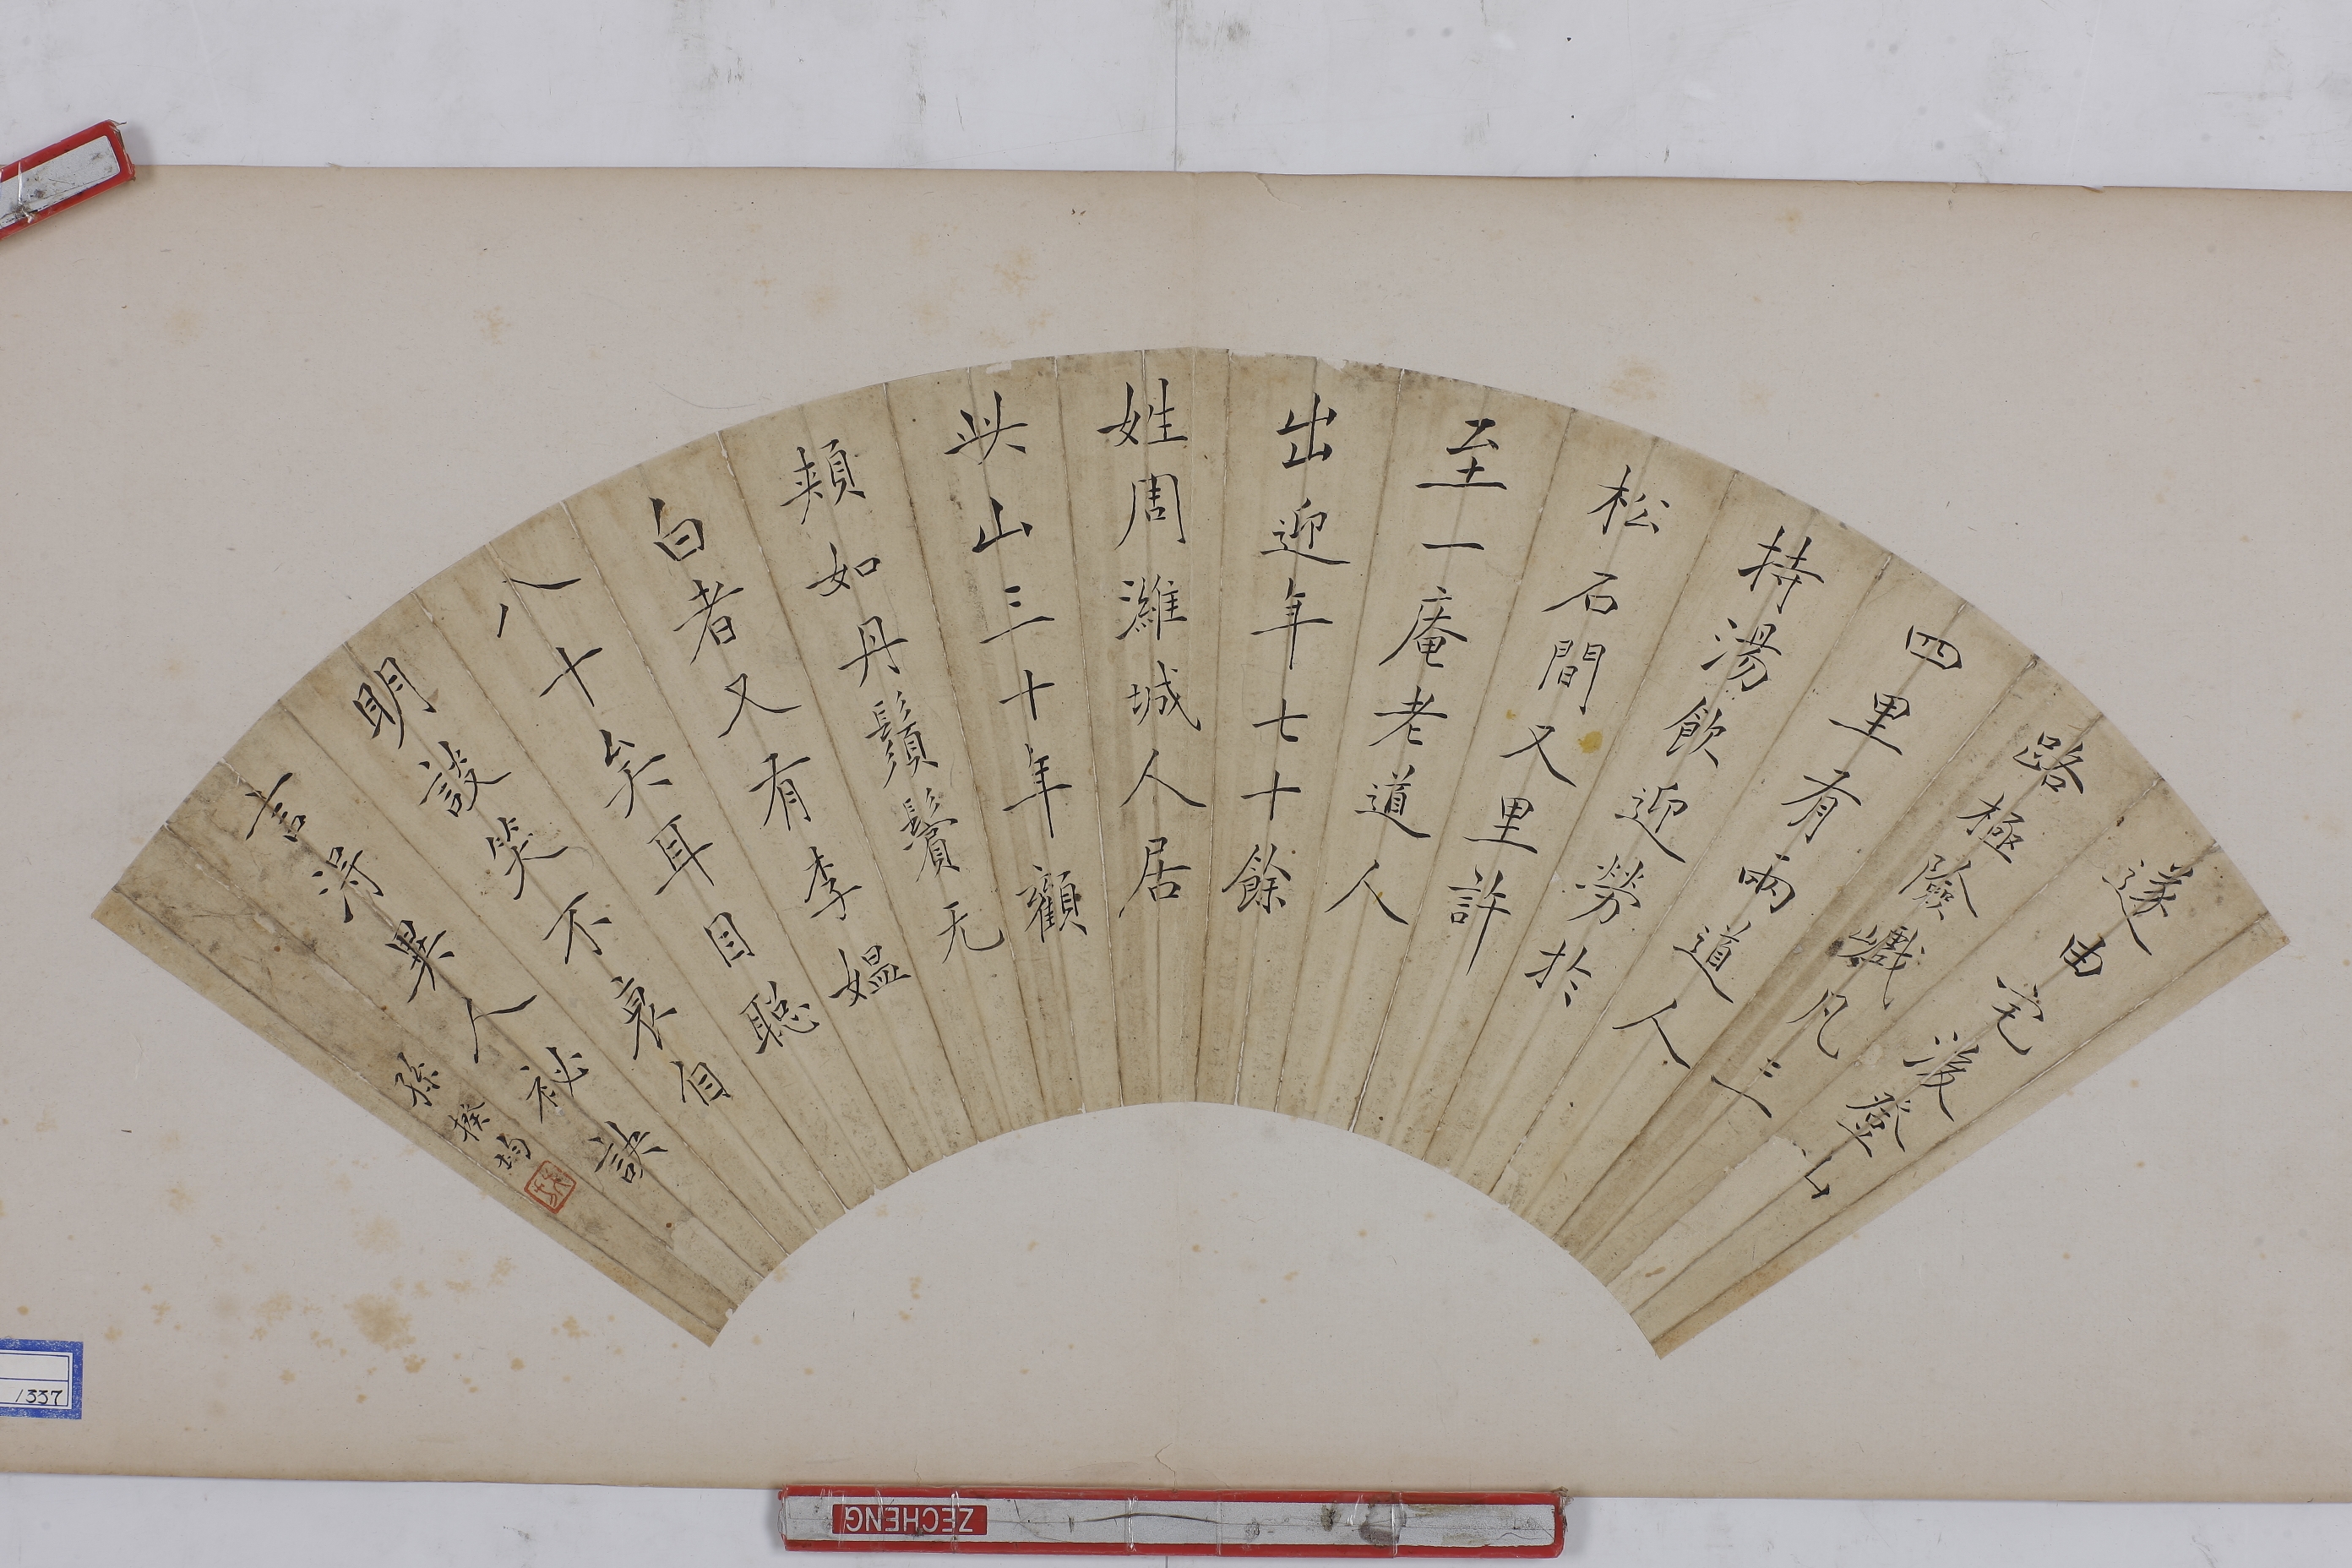 遂由宅後登山
路極險巇凡三
四里有兩道人
持湯飲迎勞於
松石間又里許
至一庵老道人
出迎年七十餘
姓周濰城人居
此山三十年顴
頰如丹鬚鬢无
白者又有李媼
八十矣耳目聡
明談笑不衰自
言得異人祕訣
孫揆均
1337
ZECHENG